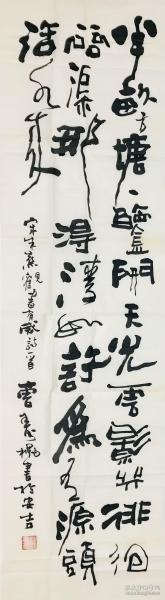 半畝方塘一鑑開天光雲影共徘徊
問渠那得清如許為有源頭
活水來
宋朱熹觀書有感詩一首 曹壽槐書於安吉